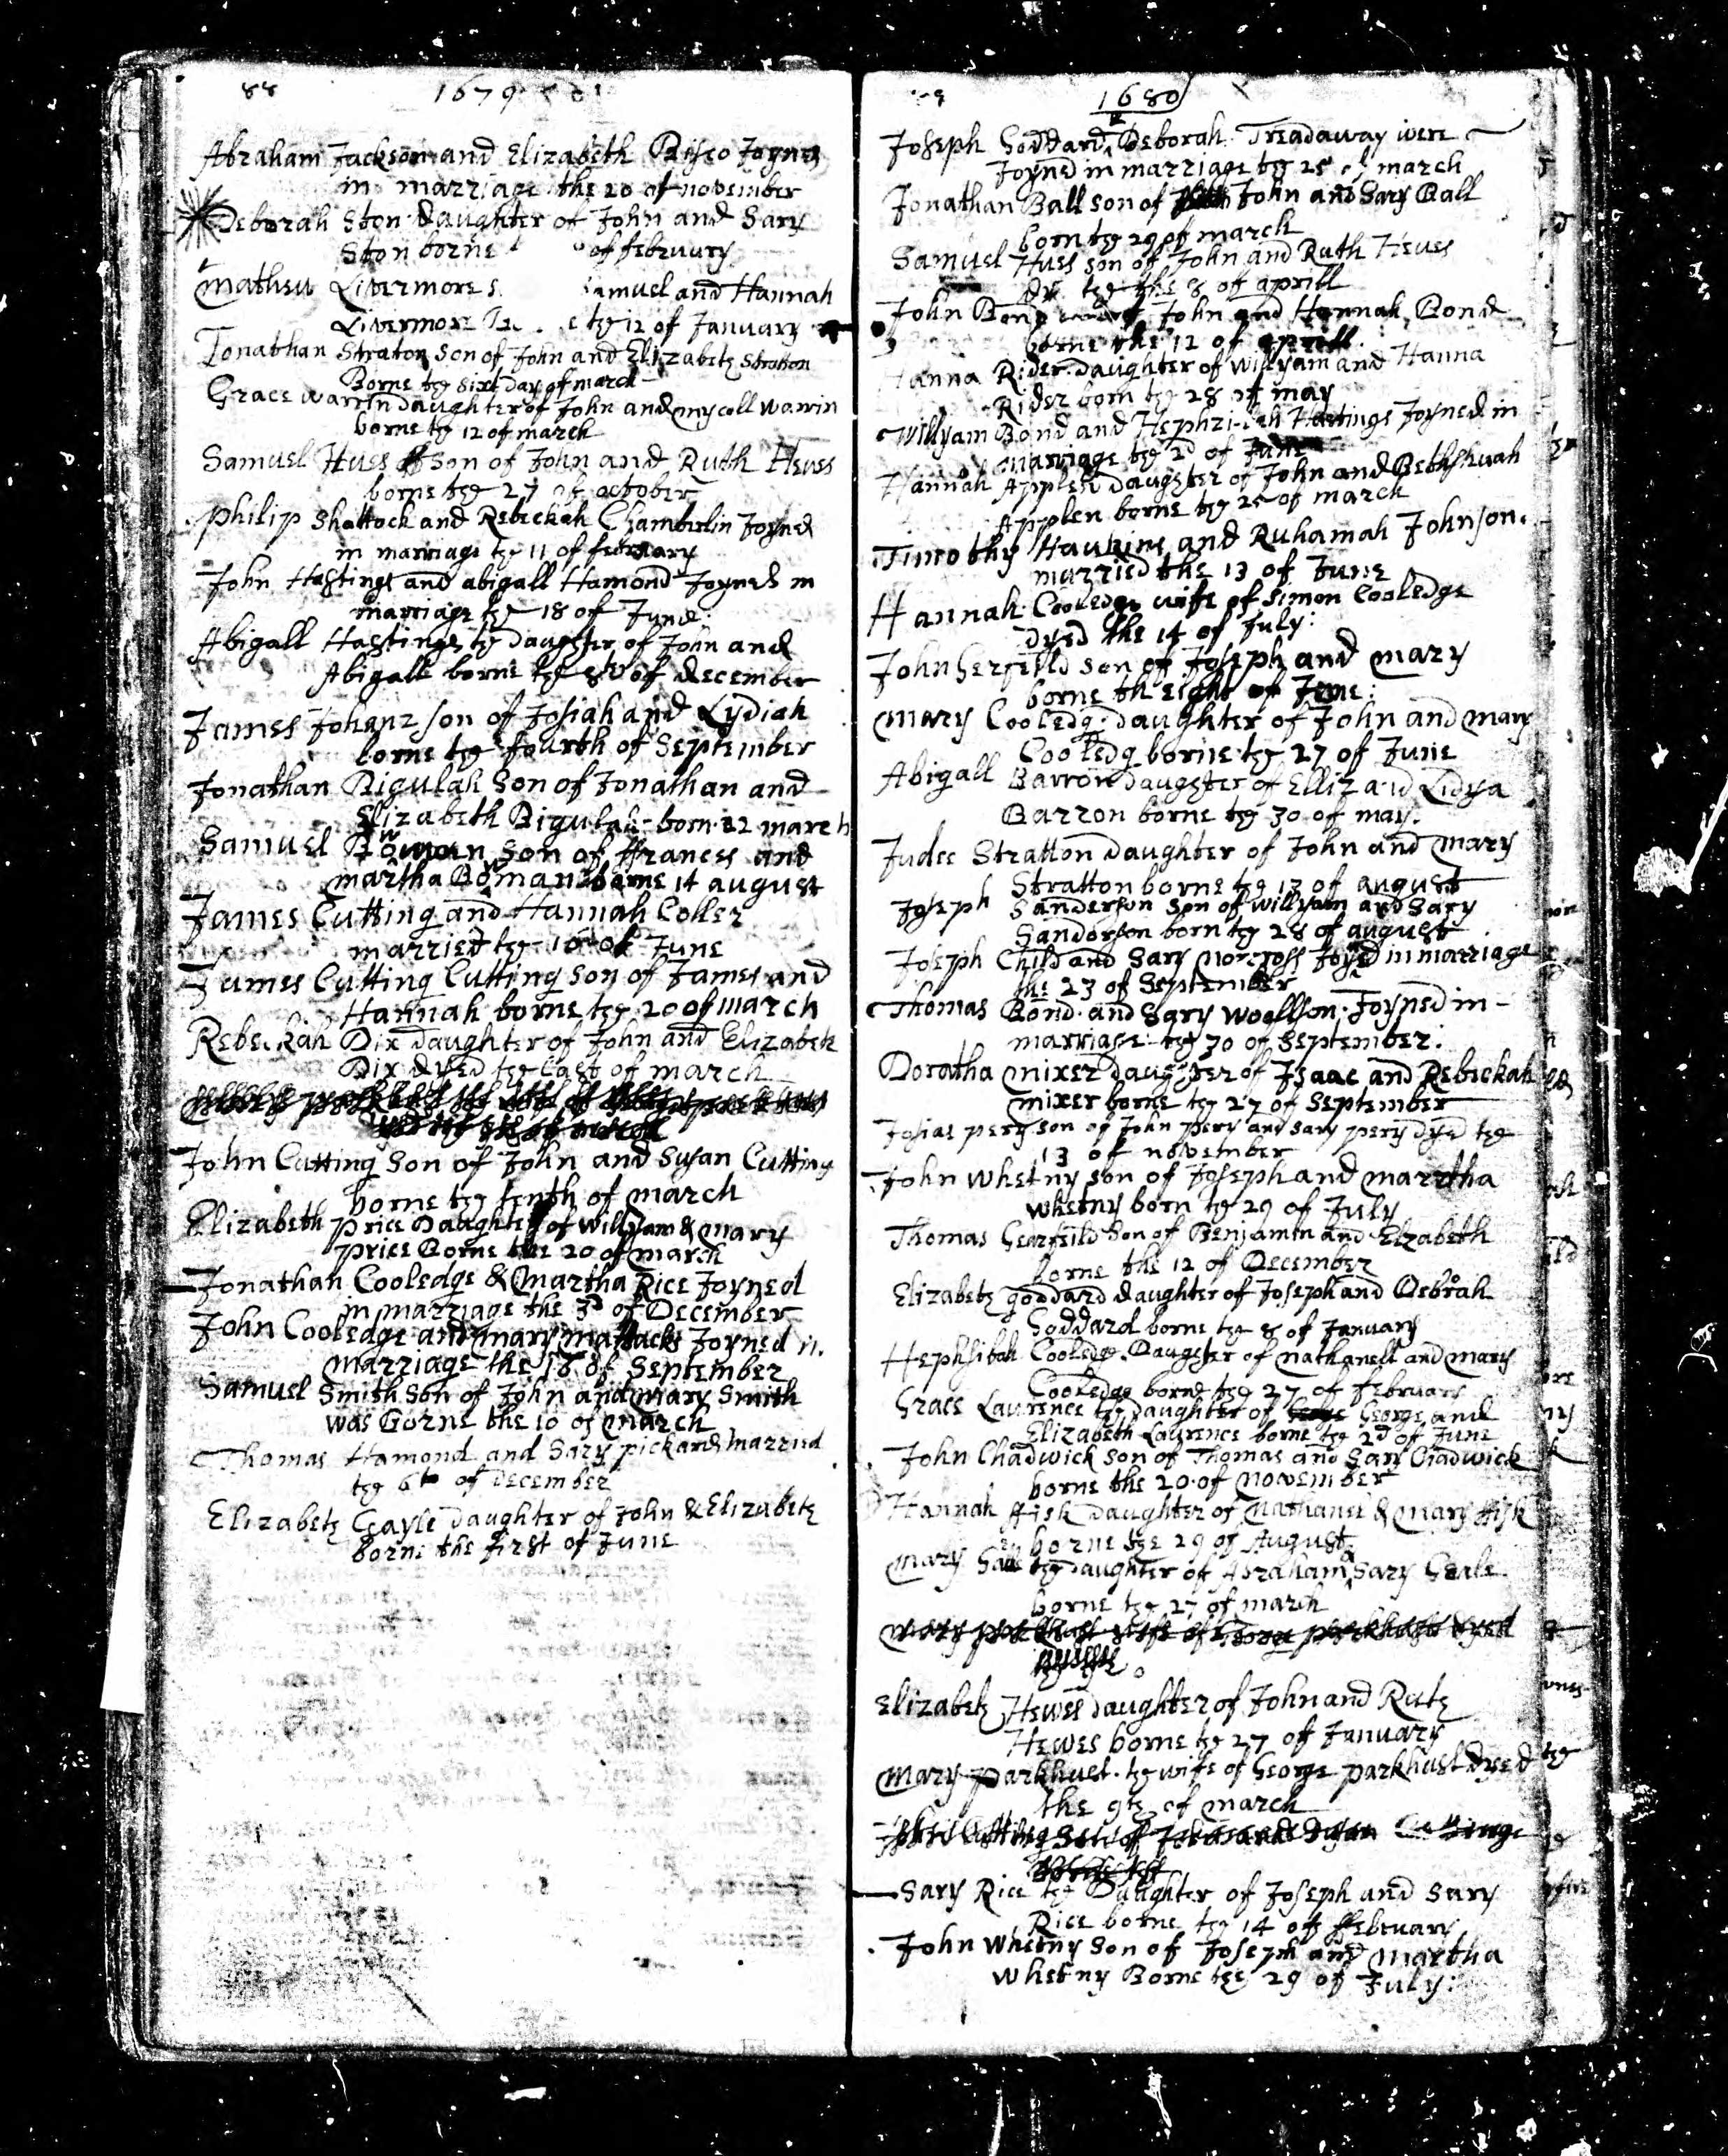 88 1679
Abraham Jackson and Elizabeth Bisco Joyned
in marriage the 20 of november
Deborah Ston daughter of John and Sary
Ston borne of february
mathew Livermore Samuel and Hannah
Livermore teg 12 of January
Jonathan Straton son of John and Elizabeth Stratton
Borne teg sixt day of march
Grace warrin daughter of John and mycall warrin
borne teg 12 of march
Samuel Hues son of John and Ruth Heues
borne teg 27 of october
philip Shattock and Rebeckah Chamberlin Joyned
in marriage teg 11 of february
John Hastings and abigall Hamond Joyned in
marriage teg 18 of June
Abigall Hastings teg daugster of John and
Abigall borne teg 8 of december
James Johanz son of Josiah and Lydiah
borne teg fourth of September
Jonathan Bigulah Son of Jonathan and
Elizabeth Bigulah born 22 march
Samuel Bowman son of ffrances and
martha Boman borne 14 august
James Cutting and Hannah Coller
married teg 16 of June
James Cutting Cutting son of James and
Hannah borne teg 20 of march
Rebeckah Dix daughter of John and Elizabeth
Dix dyed teg last of march
John Cutting Son of John and Susan Cutting
borne teg tenth of march
Elizabeth price Daughter of Willyam & mary
price Borne the 20 of march
Jonathan Cooledge & Martha Rice Joyned
in marriage the 3d of December
John Cooledge and mary mattacks Joyned in
marriage the 16 of September
Samuel Smith Son of John and mary Smith
was Borne the 10 of march
Thomas Hamond and Sary pickard married
teg 6th of december
Elizabeth Gayle daughter of John & Elizabeth
borne the first of June
1680
Joseph Goddard & Deborah Treadaway were
Joyned in marriage teg 25 of march
Jonathan Ball son of John and Sary Ball
born teg 29 of march
Samuel Hues son of John and Ruth Heues
the 8 of aprill
John Bond of John and Hannah Bond
borne the 12 of aprill
Hanna Rider daughter of willyam and Hanna
Rider born teg 28 of may
willyam Bond and Hephzi-bah Hastings Joyned in
marriage teg 2d of June
Hannah Applen daugster of John and Bethshuah
Applen borne teg 25 of march
Timothy Haukins and Ruhamah Johnson
married the 13 of June
Hannah Cooledge wife of Simon Cooledge
dyed the 14 of July:
John Gerfeild son of Joseph and mary
borne th eight of June:
mary Cooledg daughter of John and mary
Cooledg borne teg 27 of June
Abigall Barron daugster of Elliz and Lidya
Barron borne teg 30 of may.
Judee Stratton daughter of John and mary
Stratton borne teg 13 of august
Joseph Sanderson son of willyam and Sary
Sanderson born teg 28 of august
Joseph Child and Sary norcross Joyed in marriage
the 23 of September
Thomas Bond and Sary woollson Joyned in
marriage teg 30 of September:
Doratha mixer daugster of Isaac and Rebeckah
mixer borne teg 27 of September
Josias pery son of John pery and sary pery dyed teg
13 of november
John whetny son of Joseph and marrtha
whetny born teg 29 of July
Thomas Gearfeild Son of Benjamin and Elzabeth
borne the 12 of December
Elizabeth goddard daughter of Joseph and Deborah
Goddard borne teg 8 of January
Hephsibah Cooledg Daugster of nathanell and mary
Cooledge borne teg 27 of february
Grace Laurence teg daughter of George and
Elizabeth Laurence borne teg 2d of June
John Chadwick son of Thomas and Sary Chadwick
borne the 20 of november
Hannah ffisk daughter of Nathaniel & Mary ffisk
borne the 29 of August
mary Gale teg daughter of Abraham & Sary Geale
borne teg 27 of march
mary parkhust wife of George parkhust dyed
Elizabeth Hewes daughter of John and Ruth
Hewes borne teg 27 of January
mary parkhust teg wife of George parkhust dyed
the 9th of march
John Cutting Son of John and Susan Cuttinge
Sary Rice teg Daughter of Joseph and Sary
Rice borne teg 14 of ffebruary
John whetny Son of Joseph and martha
whetny Borne the 29 of July: